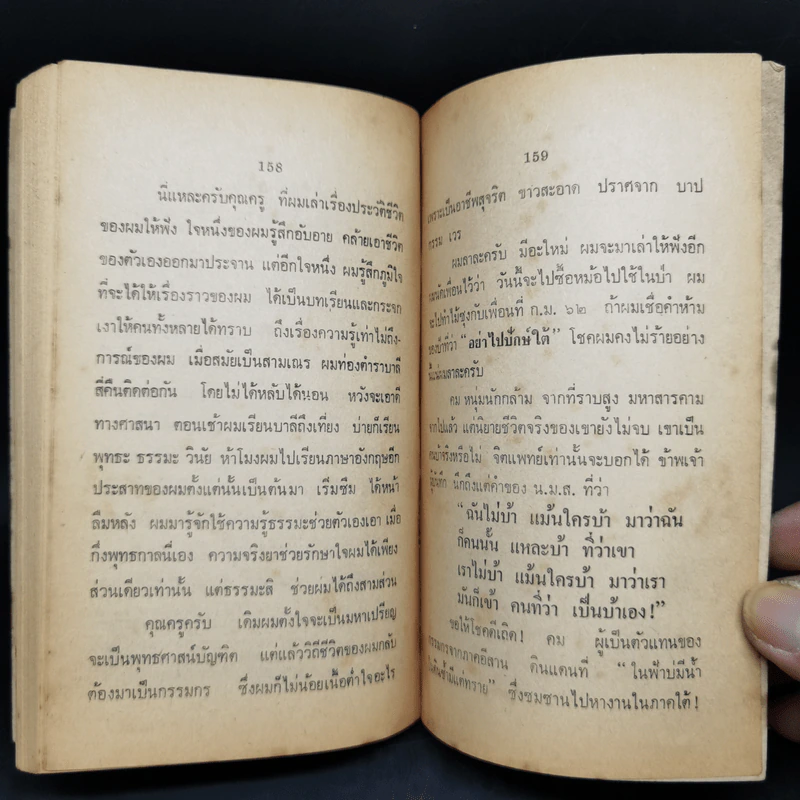 158
นี่แหละครับคุณครู ที่ผมเล่าเรื่องประวัติชีวิต
ของผมให้ฟัง ใจหนึ่งของผมรู้สึกอับอาย คล้ายเอาชีวิต
ของตัวเองออกมาประจาน แต่อีกใจหนึ่ง ผมรู้สึกภูมิใจ
ที่จะได้ให้เรื่องราวของผม ได้เป็นบทเรียนและกระจก
เงาให้คนทั้งหลายได้ทราบ ถึงเรื่องความรู้เท่าไม่ถึง-
การณ์ของผม เมื่อสมัยเป็นสามเณร ผมท่องตำราบาลี
สี่คืนติดต่อกัน โดยไม่ได้หลับได้นอน หวังจะเอาดี
ทางศาสนา ตอนเช้าผมเรียนบาลีถึงเที่ยง บ่ายก็เรียน
พุทธะ ธรรมะ วินัย ห้าโมงผมไปเรียนภาษาอังกฤษอีก
ประสาทของผมตั้งแต่นั้นเป็นต้นมา เริ่มซึม ได้หน้า
ลืมหลัง ผมมารู้จักใช้ความรู้ธรรมะช่วยตัวเองเอา เมื่อ
กึ่งพุทธกาลนี่เอง ความจริงยาช่วยรักษาใจผมได้เพียง
ส่วนเดียวเท่านั้น แต่ธรรมะสิ ช่วยผมได้ถึงสามส่วน
คุณครูครับ เดิมผมตั้งใจจะเป็นมหาเปรียญ
จะเป็นพุทธศาสน์บัณฑิต แต่แล้ววิถีชีวิตของผมกลับ
ต้องมาเป็นกรรมกร ซึ่งผมก็ไม่น้อยเนื้อต่ำใจอะไร
159
เพราะเป็นอาชีพสุจริต ขาวสะอาด ปราศจาก บาป
กรรม เวร
ผมลาละครับ มีอะไหม่ ผมจะมาเล่าให้ฟังอีก
ผมนัดเพื่อนไว้ว่า วันนี้จะไปซื้อหม้อไปใช้ในป่า ผม
จะไปทำไม้ซุงกับเพื่อนที่ ก.ม. ๖๒ ถ้าผมเชื่อคำห้าม
ที่ว่า "อย่าไปปักษ์ใต้" โชคผมคงไม่ร้ายอย่าง
ผมลาละครับ
คม หนุ่มนักกล้าม จากที่ราบสูง มหาสารคาม
จากไปแล้ว แต่นิยายชีวิตจริงของเขายังไม่จบ เขาเป็น
คนบ้าจริงหรือไม่ จิตแพทย์เท่านั้นจะบอกได้ ข้าพเจ้า
ผู้บันทึก นึกถึงแต่คำของ น.ม.ส. ที่ว่า
"ฉันไม่บ้า แม้นใครบ้า มาว่าฉัน
ก็คนนั้น แหละบ้า ที่ว่าเขา
เราไม่บ้า แม้นใครบ้า มาว่าเรา
มันก็เข้า คนที่ว่า เป็นบ้าเอง!"
ขอให้โชคดีเถิด! คม ผู้เป็นตัวแทนของ
กรรมกรจากภาคอีสาน ดินแดนที่ "ในฟ้าบ่มีน้ำ
ในดินซ้ำมีแต่ทราย" ซึ่งซมซานไปหางานในภาคใต้!